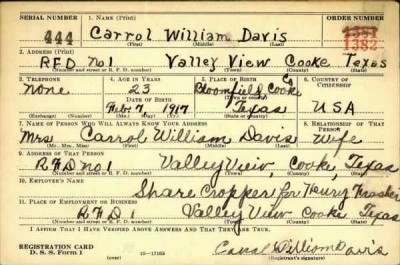 SERIAL NUMBER 1. NAME (Print) ORDER NUMBER
444 Carrol William Davis 1381
1382
(First) (Middle) (Last)
2. ADDRESS (Print)
RFD No 1 Valley View Cooke Texas
(Number and street or R. F. D. number) (Town) (County) (State)
3. TELEPHONE 4. AGE IN YEARS 5. PLACE OF BIRTH 6. COUNTRY OF CITIZENSHIP
None. 23 Bloomfield Cooke
DATE OF BIRTH
Feb. 7 1917 Texas USA
(Exchange) (Number) (Mo.) (Day) (Yr.) (State or country)
7. NAME OF PERSON WHO WILL ALWAYS KNOW YOUR ADDRESS 8. RELATIONSHIP OF THAT PERSON
Mrs Carrol William Davis Wife
(Mr., Mrs., Miss) (First) (Middle) (Last)
9. ADDRESS OF THAT PERSON
RFD No 1 Valley View, Cooke, Texas
(Number and street or R. F. D. number) (Town) (County) (State)
10. EMPLOYER'S NAME
Share Cropper for Henry
11. PLACE OF EMPLOYMENT OR BUSINESS
RFD 1 Valley View Cooke Texas
(Number and street or R. F. D. number) (Town) (County) (State)
I AFFIRM THAT I HAVE VERIFIED ABOVE ANSWERS AND THAT THEY ARE TRUE.
REGISTRATION CARD
D. S. S. Form 1 (over) 16—17105 Carrol William Davis
(Registrant's signature)